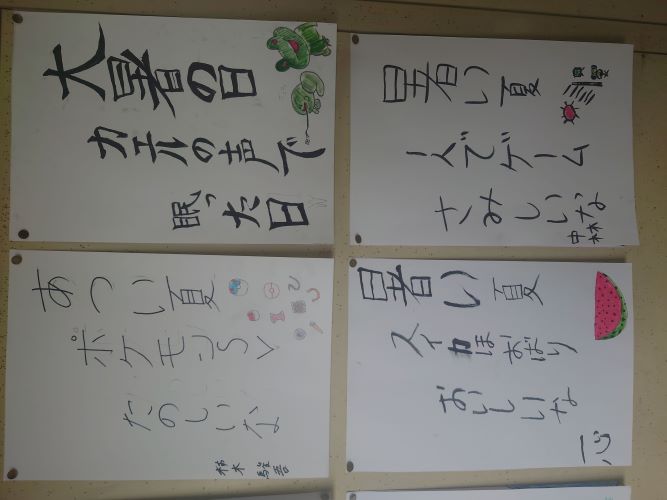 大暑の日
カエルの声で
眠った日
暑い夏
一人でゲーム
さみしいな
中林
あつい夏
ポケモンSV
たのしいな
暑い夏
スイカほおばり
おいしいな
一心